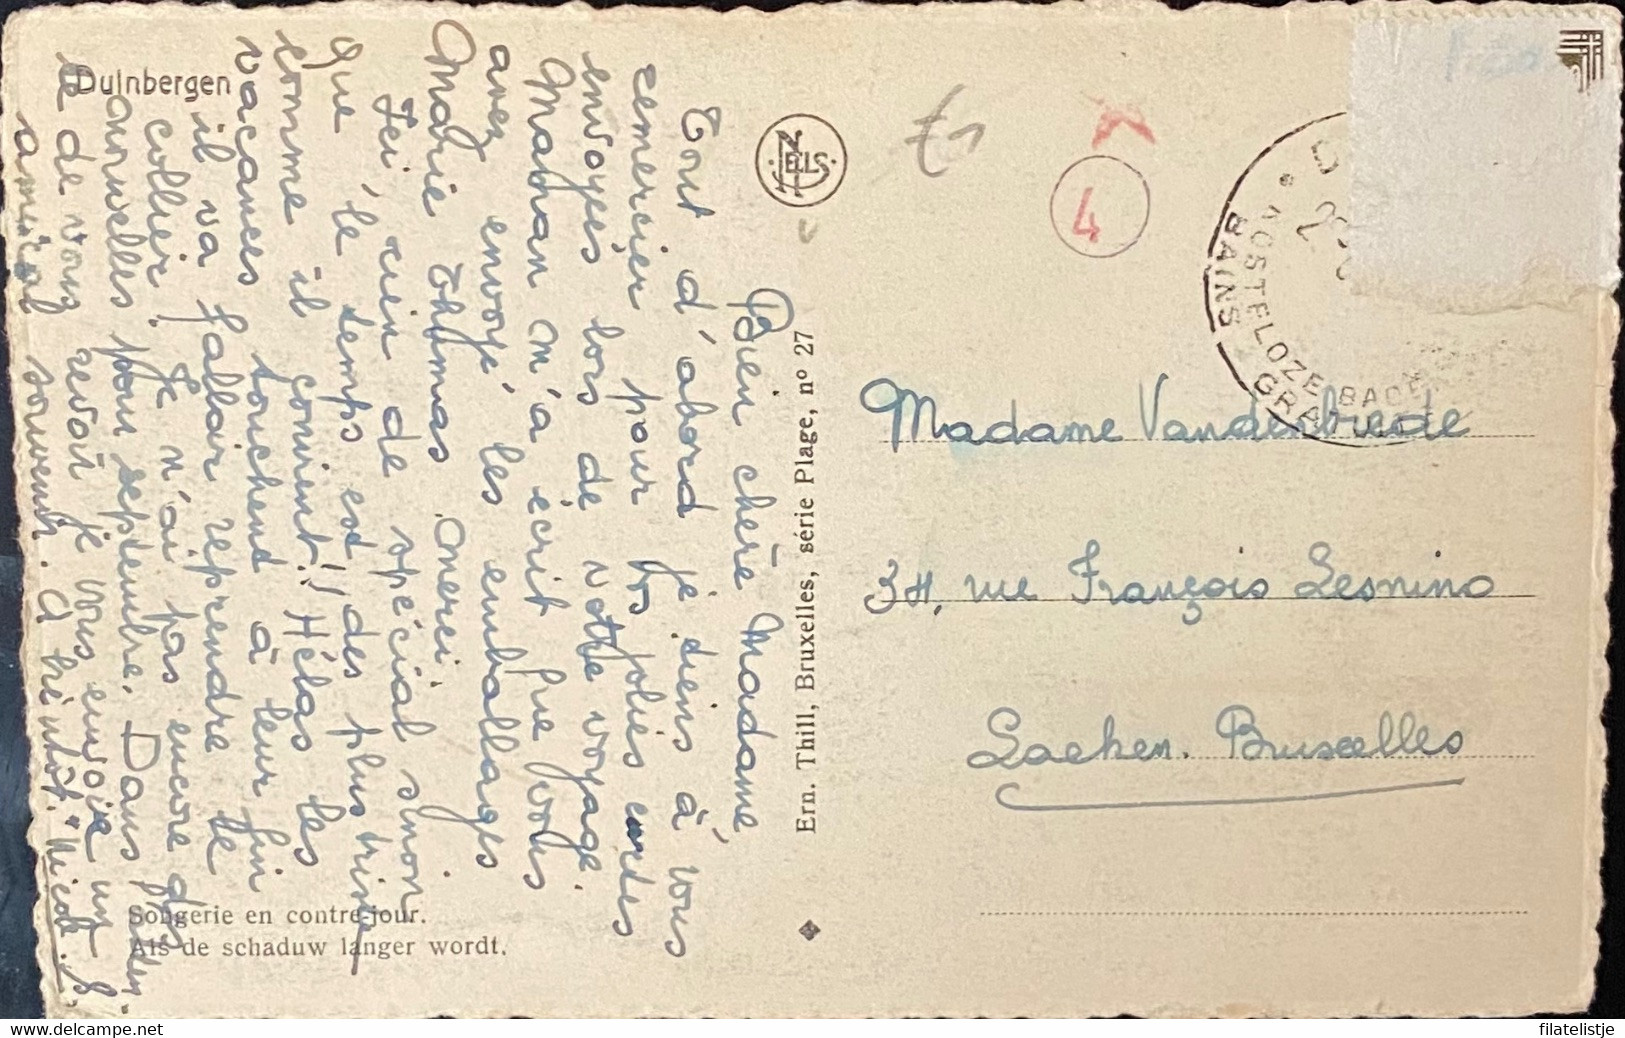 Duinbergen
Bien chère Madame
Tout d'abord je tiens à vous
remercier pour les jolies cartes
envoyés lors de votre voyage.
Maman m'a écrit que vous
avez envoyé les emballages
Marie Thomas. Merci.
Ici, rien de spécial sinon
que le temps est des plus
comme il convient! Hélas les
vacances touchent à leur fin
il va falloir reprendre le
collier. Je n'ai pas encore de
nouvelles pour septembre. Dans
de vous revoir je vous envoie un
amical souvenir. A bientôt.
Songerie en contre-jour.
Als de schaduw langer wordt.
NELS
Ern. Thill, Bruxelles, série Plage, nº 27
4
KNOCKE
BAINS
Madame Vandenbrede
34, rue François Lesnino
Laeken. Bruxelles
filatelistje
uw-deelcampe.net